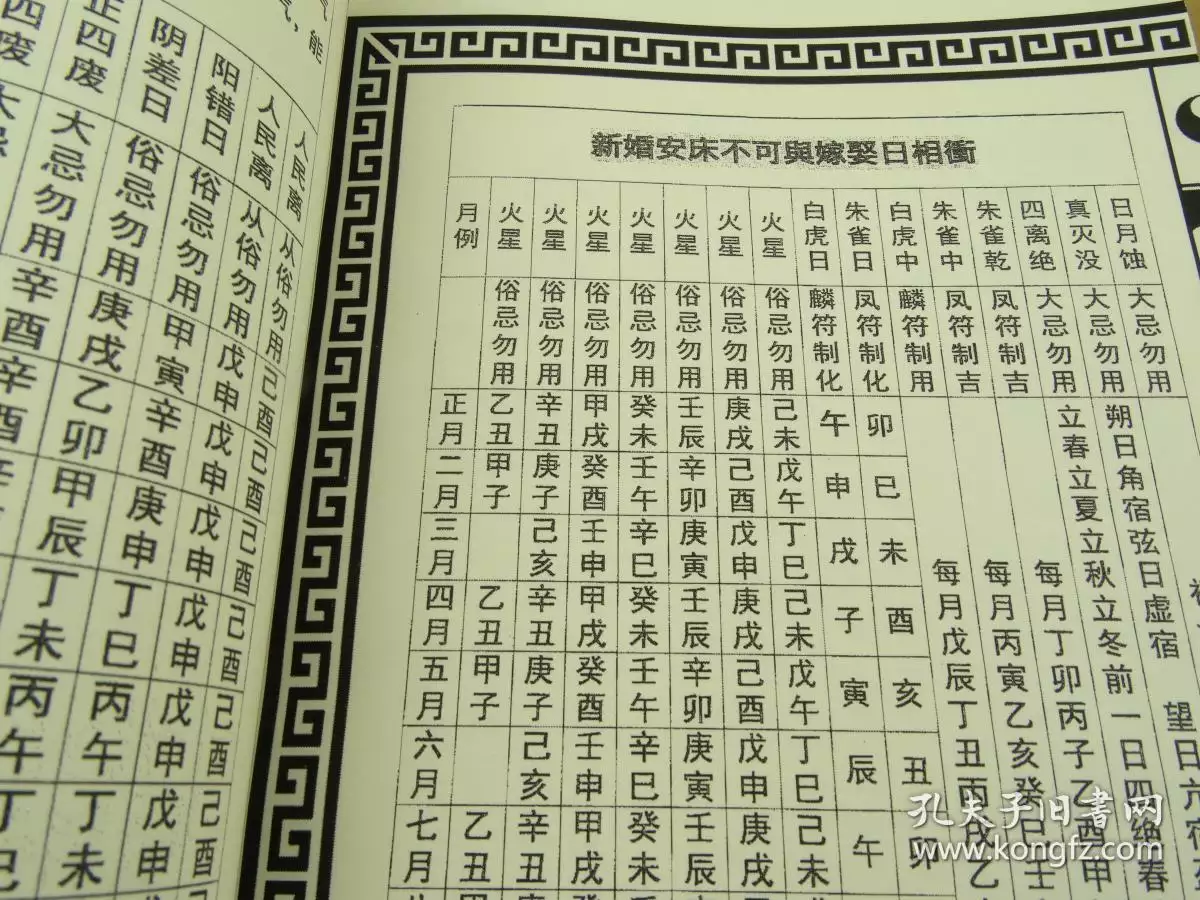 气
气，能
四废
正四废
阴差日
阳错日
人民离
人民离
大忌
大忌勿用
俗忌勿用
俗忌勿用
从俗勿用
从俗勿用
辛酉
庚戌
甲寅
戊申
己酉
辛酉
乙卯
辛酉
戊申
己酉
甲辰
庚申
戊申
己酉
丁未
丁巳
戊申
己酉
丙午
丙午
戊申
己酉
丁巳
丁未
戊申
己酉
新婚安床不可與嫁娶日相衝
月例 火星 火星 火星 火星 火星 火星 火星 白虎日 朱雀日 白虎中 朱雀中 朱雀乾 四离绝 真灭没 日月蚀
俗忌勿用 俗忌勿用 俗忌勿用 俗忌勿用 俗忌勿用 俗忌勿用 俗忌勿用 麟符制化 凤符制化 麟符制用 凤符制吉 凤符制吉 大忌勿用 大忌勿用 大忌勿用
正月 乙丑 辛丑 甲戌 癸未 壬辰 庚戌 己未 午 卯
二月 甲子 庚子 癸酉 壬午 辛卯 己酉 戊午 申 巳
三月 己亥 壬申 辛巳 庚寅 戊申 丁巳 戌 未
四月 乙丑 辛丑 甲戌 癸未 壬辰 庚戌 己未 子 酉
五月 甲子 庚子 癸酉 壬午 辛卯 己酉 戊午 寅 亥
六月 己亥 壬申 辛巳 庚寅 戊申 丁巳 辰 丑
七月 乙丑 辛丑 甲戌 癸未 壬辰 庚戌 己未 午 卯
每月戊辰丁丑丙戌乙
每月丙寅乙亥癸巳壬
每月丁卯丙子乙酉甲
立春立夏立秋立冬前一日四绝春
朔日角宿弦日虚宿 望日亢宿
孔夫子旧书网
www.kongfz.com